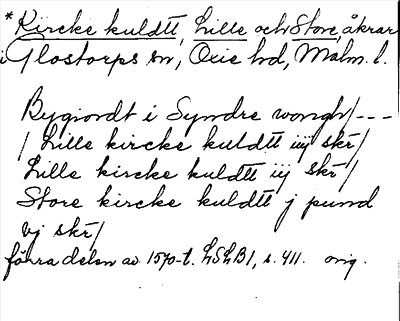 * Kircke kuldtt, Lille och Store, åkrar
i Glostorps sn, Oxie hd, Malm. l.
Bygiordt i Syndre wongh/---
/ Lille kircke kuldtt iiij skr/
Lille kircke kuldtt iij skr/
Store kircke kuldtt j pund
vj skr/
förra delen av 1570-t. LSLB1, s. 411. orig.